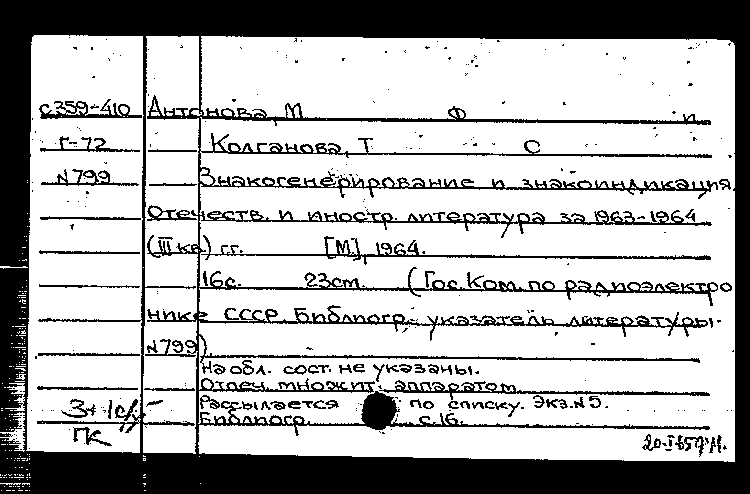 с359-410 Антонова, М Ф и
Г-72 Колганова, Т С
N799 Знакогенерирование и знакоиндикация.
Отечеств. и иностр. литература за 1963-1964
(III кв.) г.г. [М.], 1964.
16с. 23cm. (Гос. Ком. по радиоэлектро
нике СССР. Библиогр. указатель литературы.
N799)
На обл. сост. не указаны.
Отпеч. множит. аппаратом
Рассылается по списку. Экз.N5.
Библиогр. с.16.
ПК